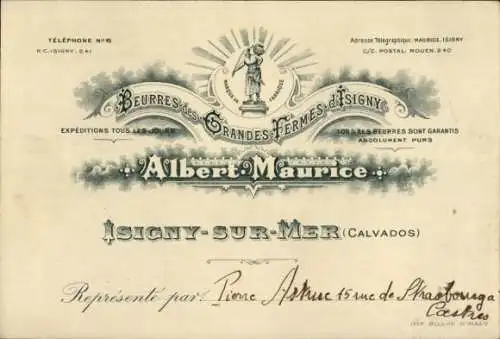 TÉLÉPHONE Nº 6
R.C. ISIGNY, 241
Adresse Télégraphique: MAURICE, ISIGNY
C/C. POSTAL: ROUEN, 240
MARQUE DE FABRIQUE
BEURRES DES GRANDES FERMES D'ISIGNY
EXPÉDITIONS TOUS LES JOURS
TOUS LES BEURRES SONT GARANTIS
ABSOLUMENT PURS
Albert Maurice
ISIGNY-SUR-MER (CALVADOS)
Représenté par Pierre Astruc 15 rue de Strasbourg
Castres